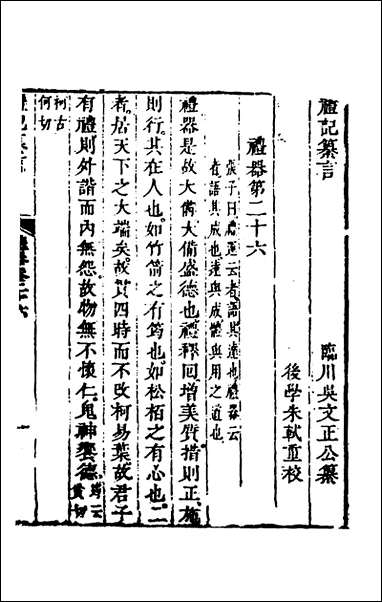 禮記纂言
臨川吳文正公纂
後學朱軾重校
禮器第二十六
張子曰禮運云者語其達也禮器云
者語其成也達與成體與用之道也
禮器是故大備大備盛德也禮釋回增美質措則正施
則行其在人也如竹箭之有筠也如松柏之有心也二
者居天下之大端矣故貫四時而不改柯易葉故君子
有禮則外諧而內無怨故物無不懷仁鬼神饗德
筠云
貧切
柯古
何切